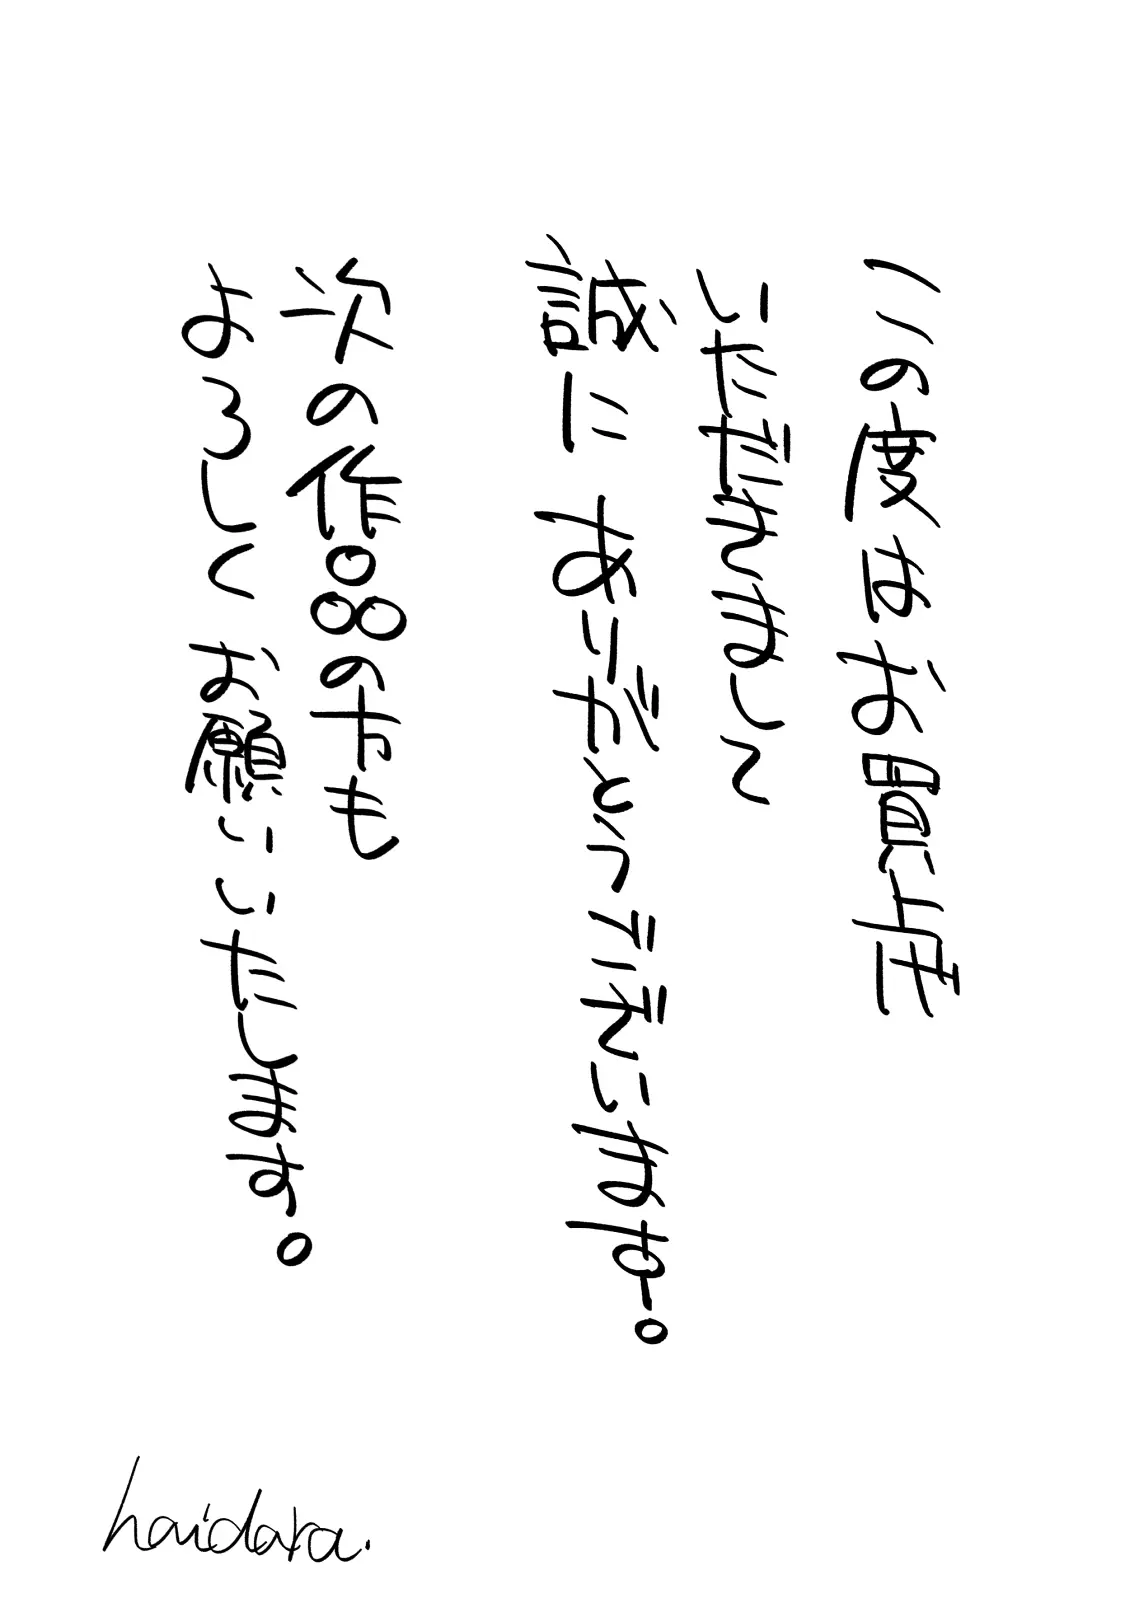 この度はお買上げ
いただきまして
誠にありがとうございます。
次の作品の方も
よろしくお願いいたします。
haidara.